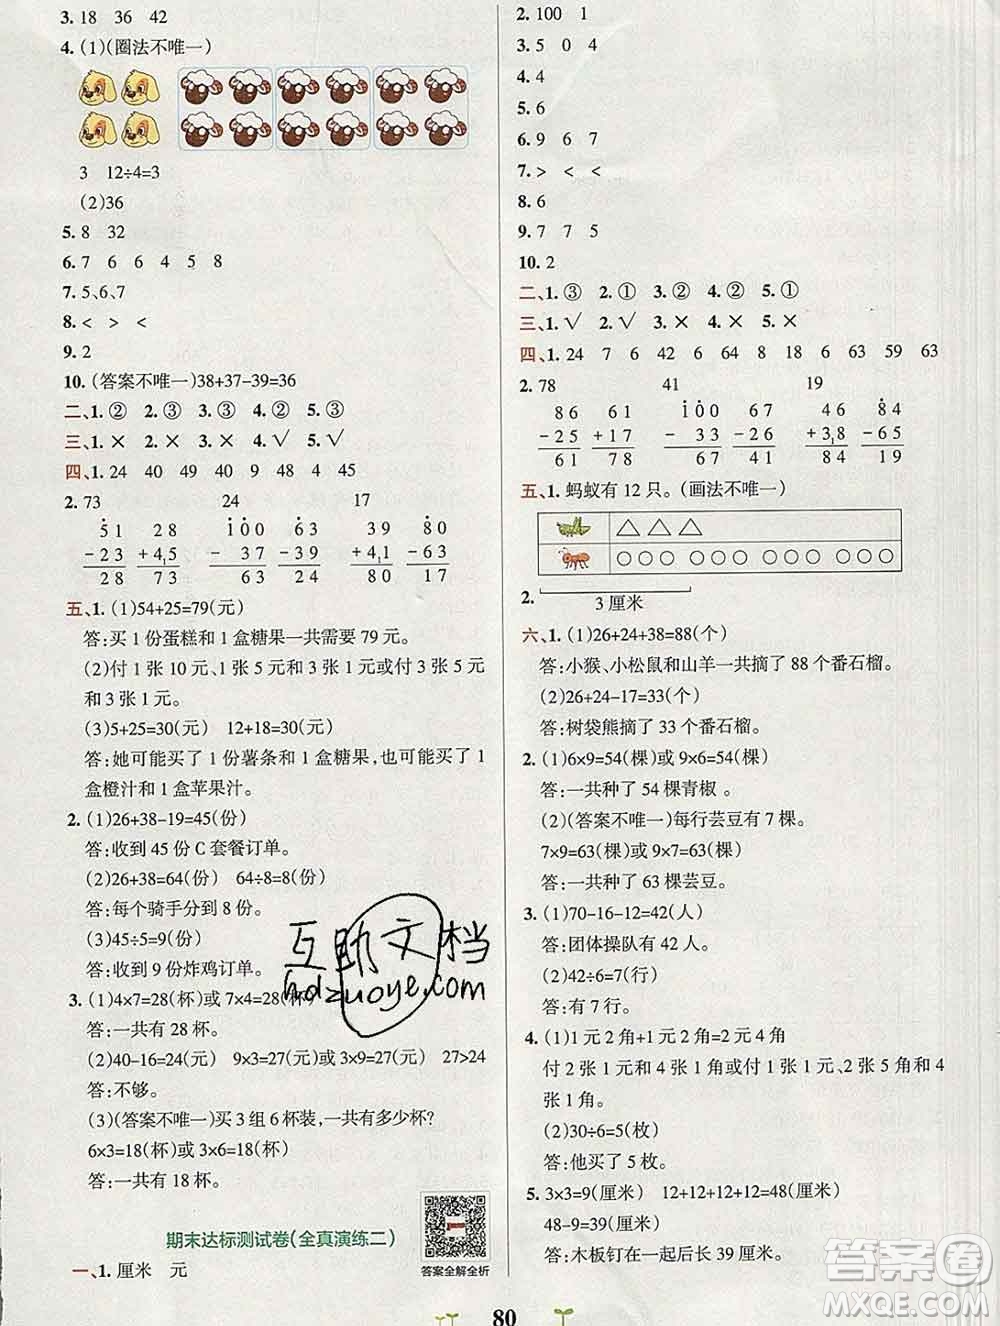 3. 18 36 42
4. (1)(圈法不唯一)
3 12÷4=3
(2)36
5. 8 32
6. 7 6 6 4 5 8
7. 5、6、7
8. < > <
9. 2
10. (答案不唯一)38+37-39=36
二、1. ② 2. ③ 3. ③ 4. ② 5. ③
三、1. × 2. × 3. × 4. √ 5. √
四、1. 24 40 49 40 9 48 4 45
2. 73 24 17
51 28 100 63 39 80
-23 +45 -37 -39 +41 -63
28 73 63 24 80 17
五、1. (1)54+25=79(元)
答:买 1 份蛋糕和 1 盒糖果一共需要 79 元。
(2)付 1 张 10 元、1 张 5 元和 3 张 1 元或付 3 张 5 元
和 3 张 1 元。
(3)5+25=30(元) 12+18=30(元)
答:她可能买了 1 份薯条和 1 盒糖果,也可能买了 1
盒橙汁和 1 盒苹果汁。
2. (1)26+38-19=45(份)
答:收到 45 份 C 套餐订单。
(2)26+38=64(份) 64÷8=8(份)
答:每个骑手分到 8 份。
(3)45÷5=9(份)
答:收到 9 份炸鸡订单。
3. (1)4×7=28(杯)或 7×4=28(杯)
答:一共有 28 杯。
(2)40-16=24(元) 9×3=27(元)或 3×9=27(元) 27>24
答:不够。
(3)(答案不唯一)买 3 组 6 杯装,一共有多少杯?
6×3=18(杯)或 3×6=18(杯)
答:一共有 18 杯。
期末达标测试卷(全真演练二)
答案全解全析
一、1. 厘米 元
2. 100 1
3. 5 0 4
4. 9
5. 6
6. 9 6 7
7. > < <
8. 6
9. 7 7 5
10. 2
二、1. ③ 2. ① 3. ② 4. ② 5. ①
三、1. √ 2. √ 3. × 4. × 5. ×
四、1. 24 7 6 42 6 64 6 63 59 63
2. 78 41 19
86 61 100 67 46 84
-25 +17 -33 -26 +38 -65
61 78 67 41 84 19
五、1. 蚂蚁有 12 只。(画法不唯一)
△ △ △
○○○ ○○○ ○○○ ○○○
2. 3 厘米
六、1. (1)26+24+38=88(个)
答:小猴、小松鼠和山羊一共摘了 88 个番石榴。
(2)26+24-17=33(个)
答:树袋熊摘了 33 个番石榴。
2. (1)6×9=54(棵)或 9×6=54(棵)
答:一共种了 54 棵青椒 。
(2)(答案不唯一)每行芸豆有 7 棵。
7×9=63(棵)或 9×7=63(棵)
答:一共种了 63 棵芸豆。
3. (1)70-16-12=42(人)
答:团体操队有 42 人。
(2)42÷6=7(行)
答:有 7 行。
4. (1)1 元 2 角+1 元 2 角=2 元 4 角
付 2 张 1 元和 4 张 1 角或付 1 张 2 元和 4
张 1 角。
(2)30÷6=5(枚)
答:他买了 5 枚。
5. 3×3=9(厘米) 12+12+12+12=48(厘米)
48-9=39(厘米)
答:木板钉在一起后长 39 厘米。
80
互助文档
hdzuoye.com
答案圈
MXQE.COM